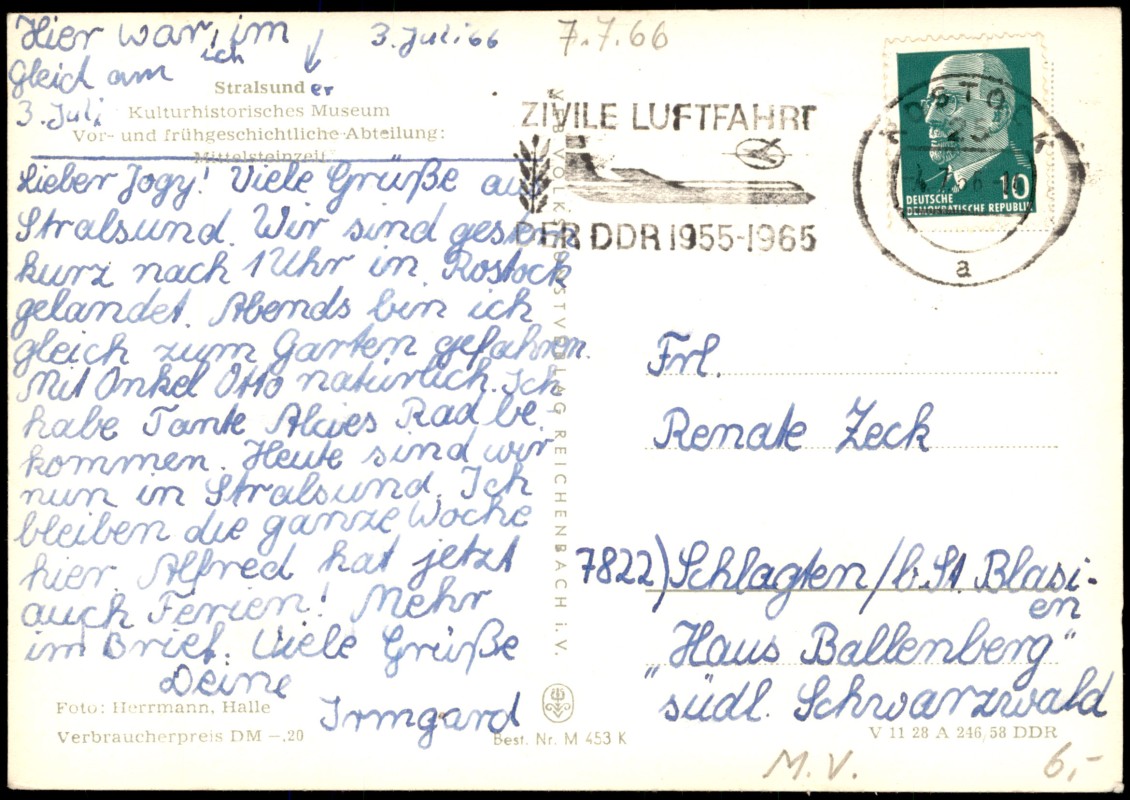 Hier war, im
ich
gleich am
3. Juli
3. Juli 66
7.7.66
Stralsunder
Kulturhistorisches Museum
Vor- und frühgeschichtliche Abteilung:
Mittelsteinzeit
Lieber Jogy! Viele Grüße aus
Stralsund. Wir sind gestern
kurz nach 1 Uhr in Rostock
gelandet. Abends bin ich
gleich zum Garten gefahren.
Mit Onkel Otto natürlich. Ich
habe Tante Alcies Rad be
kommen. Heute sind wir
nun in Stralsund. Ich
bleiben die ganze Woche
hier. Alfred hat jetzt
auch Ferien! Mehr
im Brief. Viele Grüße
Deine
Irmgard
Foto: Herrmann, Halle
Verbraucherpreis DM –,20
Best. Nr. M 453 K
VEB VOLKSKUNSTVERLAG REICHENBACH i. V.
ZIVILE LUFTFAHRT
DER DDR 1955-1965
ROSTOCK
a
10
DEUTSCHE
DEMOKRATISCHE REPUBLIK
Frl.
Renate Zeck
7822) Schlagten / b. St. Blasi-
en
"Haus Ballenberg"
südl. Schwarzwald
V 11 28 A 246/58 DDR
M.V.
6,-